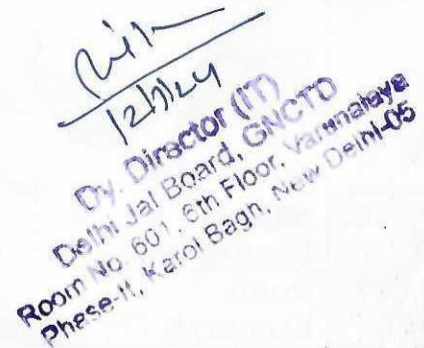 12/7/24
Dy. Director (IT)
Delhi Jal Board, GNCTD
Room No. 601, 6th Floor, Varunalaya
Phase-II, Karol Bagh, New Delhi-05